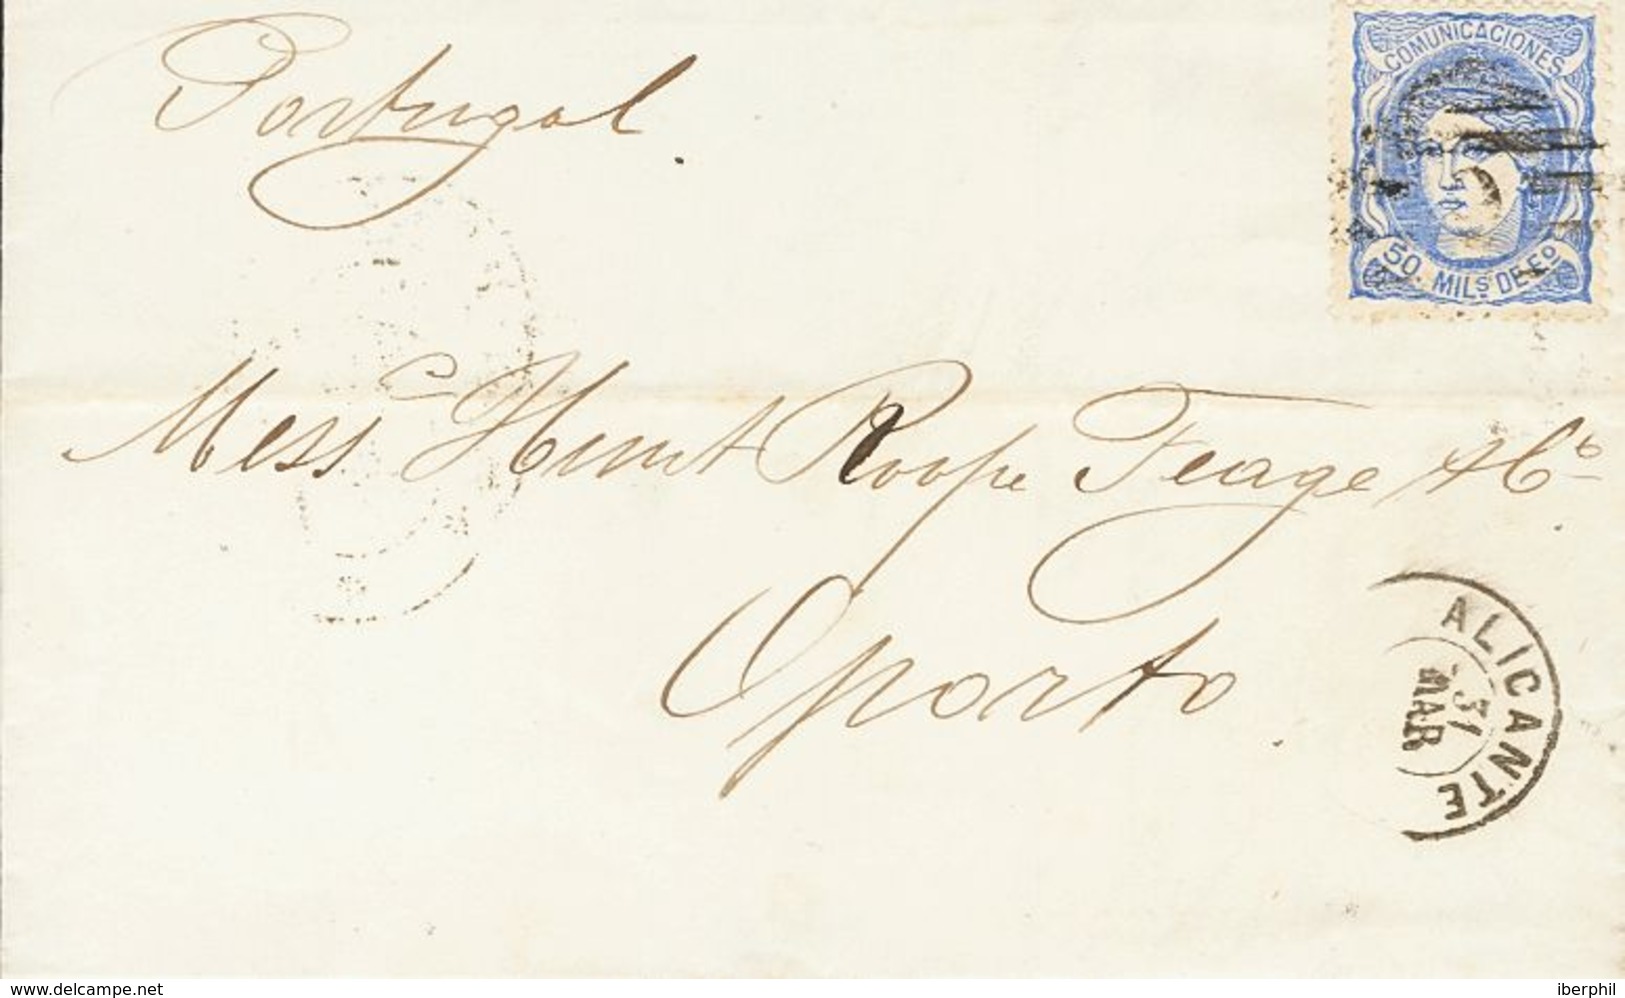 Portugal.
COMUNICACIONES
50 MILS DE Eo
Messrs Hunt Roope Teage & Co.
Oporto.
ALICANTE
31
MAR
www.delcampe.net
iberphil